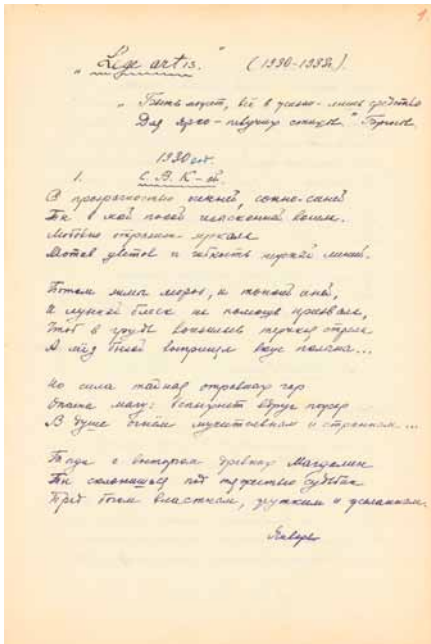 1.
„Lege artis." (1930-1932г.).
„Быть может, всё в жизни – лишь средство
Для ярко-певучих стихов."
1930 год.
1. С. В. К-ой.
С прозрачностью осенней, сонно-синей
Ты в мой покой вошла.
Любовью отразили зеркала
цветов и гибкость линий.
Потом зимы мороз, и тонкий иней,
И лунный блеск на помощь призвала,
Чтоб в грудь вонзилась терпкая стрела
А мёд былой вкус полыни...
Но сила тайная отравных чар
Опасна магу: вспыхнет вдруг пожар
В душе огнём мучительным и странным...
Тогда с восторгом древних Магдалин
Ты склонишься под тяжестью судьбин
Пред богом властным, жутким и желанным.
Январь